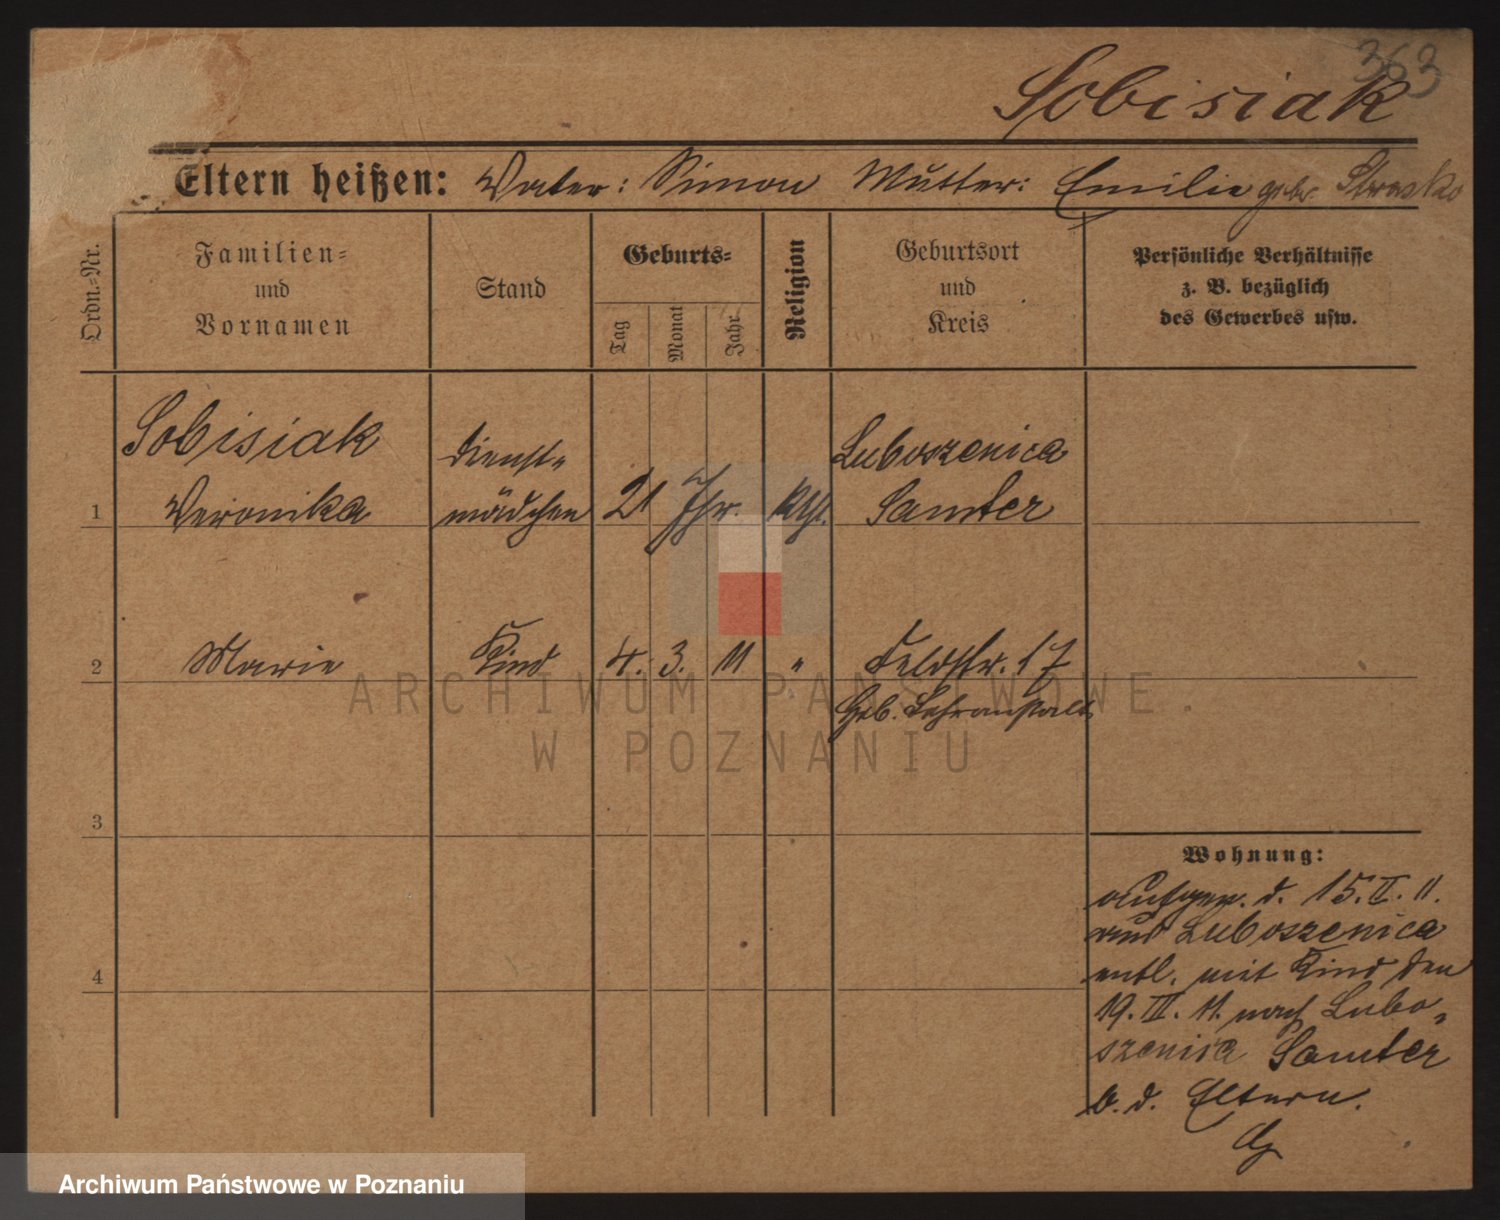 363
Sobisiak
Eltern heißen: Vater: Simon Mutter: Emilie gebr. Strasko
Ordn.-Nr.
Familien-
und
Vornamen
Stand
Geburts-
Tag
Monat
Jahr
Religion
Geburtsort
und
Kreis
Persönliche Verhältnisse
z. B. bezüglich
des Gewerbes usw.
Sobisiak Dienst- Luboszenica
1 Veronika mädchen 21 Jhr. kth. Samter
2 Marie Kind 4. 3. 11 " Feldstr. 17
Geb. Lehranstalt
3
4
Wohnung:
Aufgen. d. 15. II. 11.
aus Luboszenica
entl. mit Kind den
19. III. 11. nach Lubo-
szenica Samter
b. d. Eltern.
ARCHIWUM PAŃSTWOWE
W POZNANIU
Archiwum Państwowe w Poznaniu